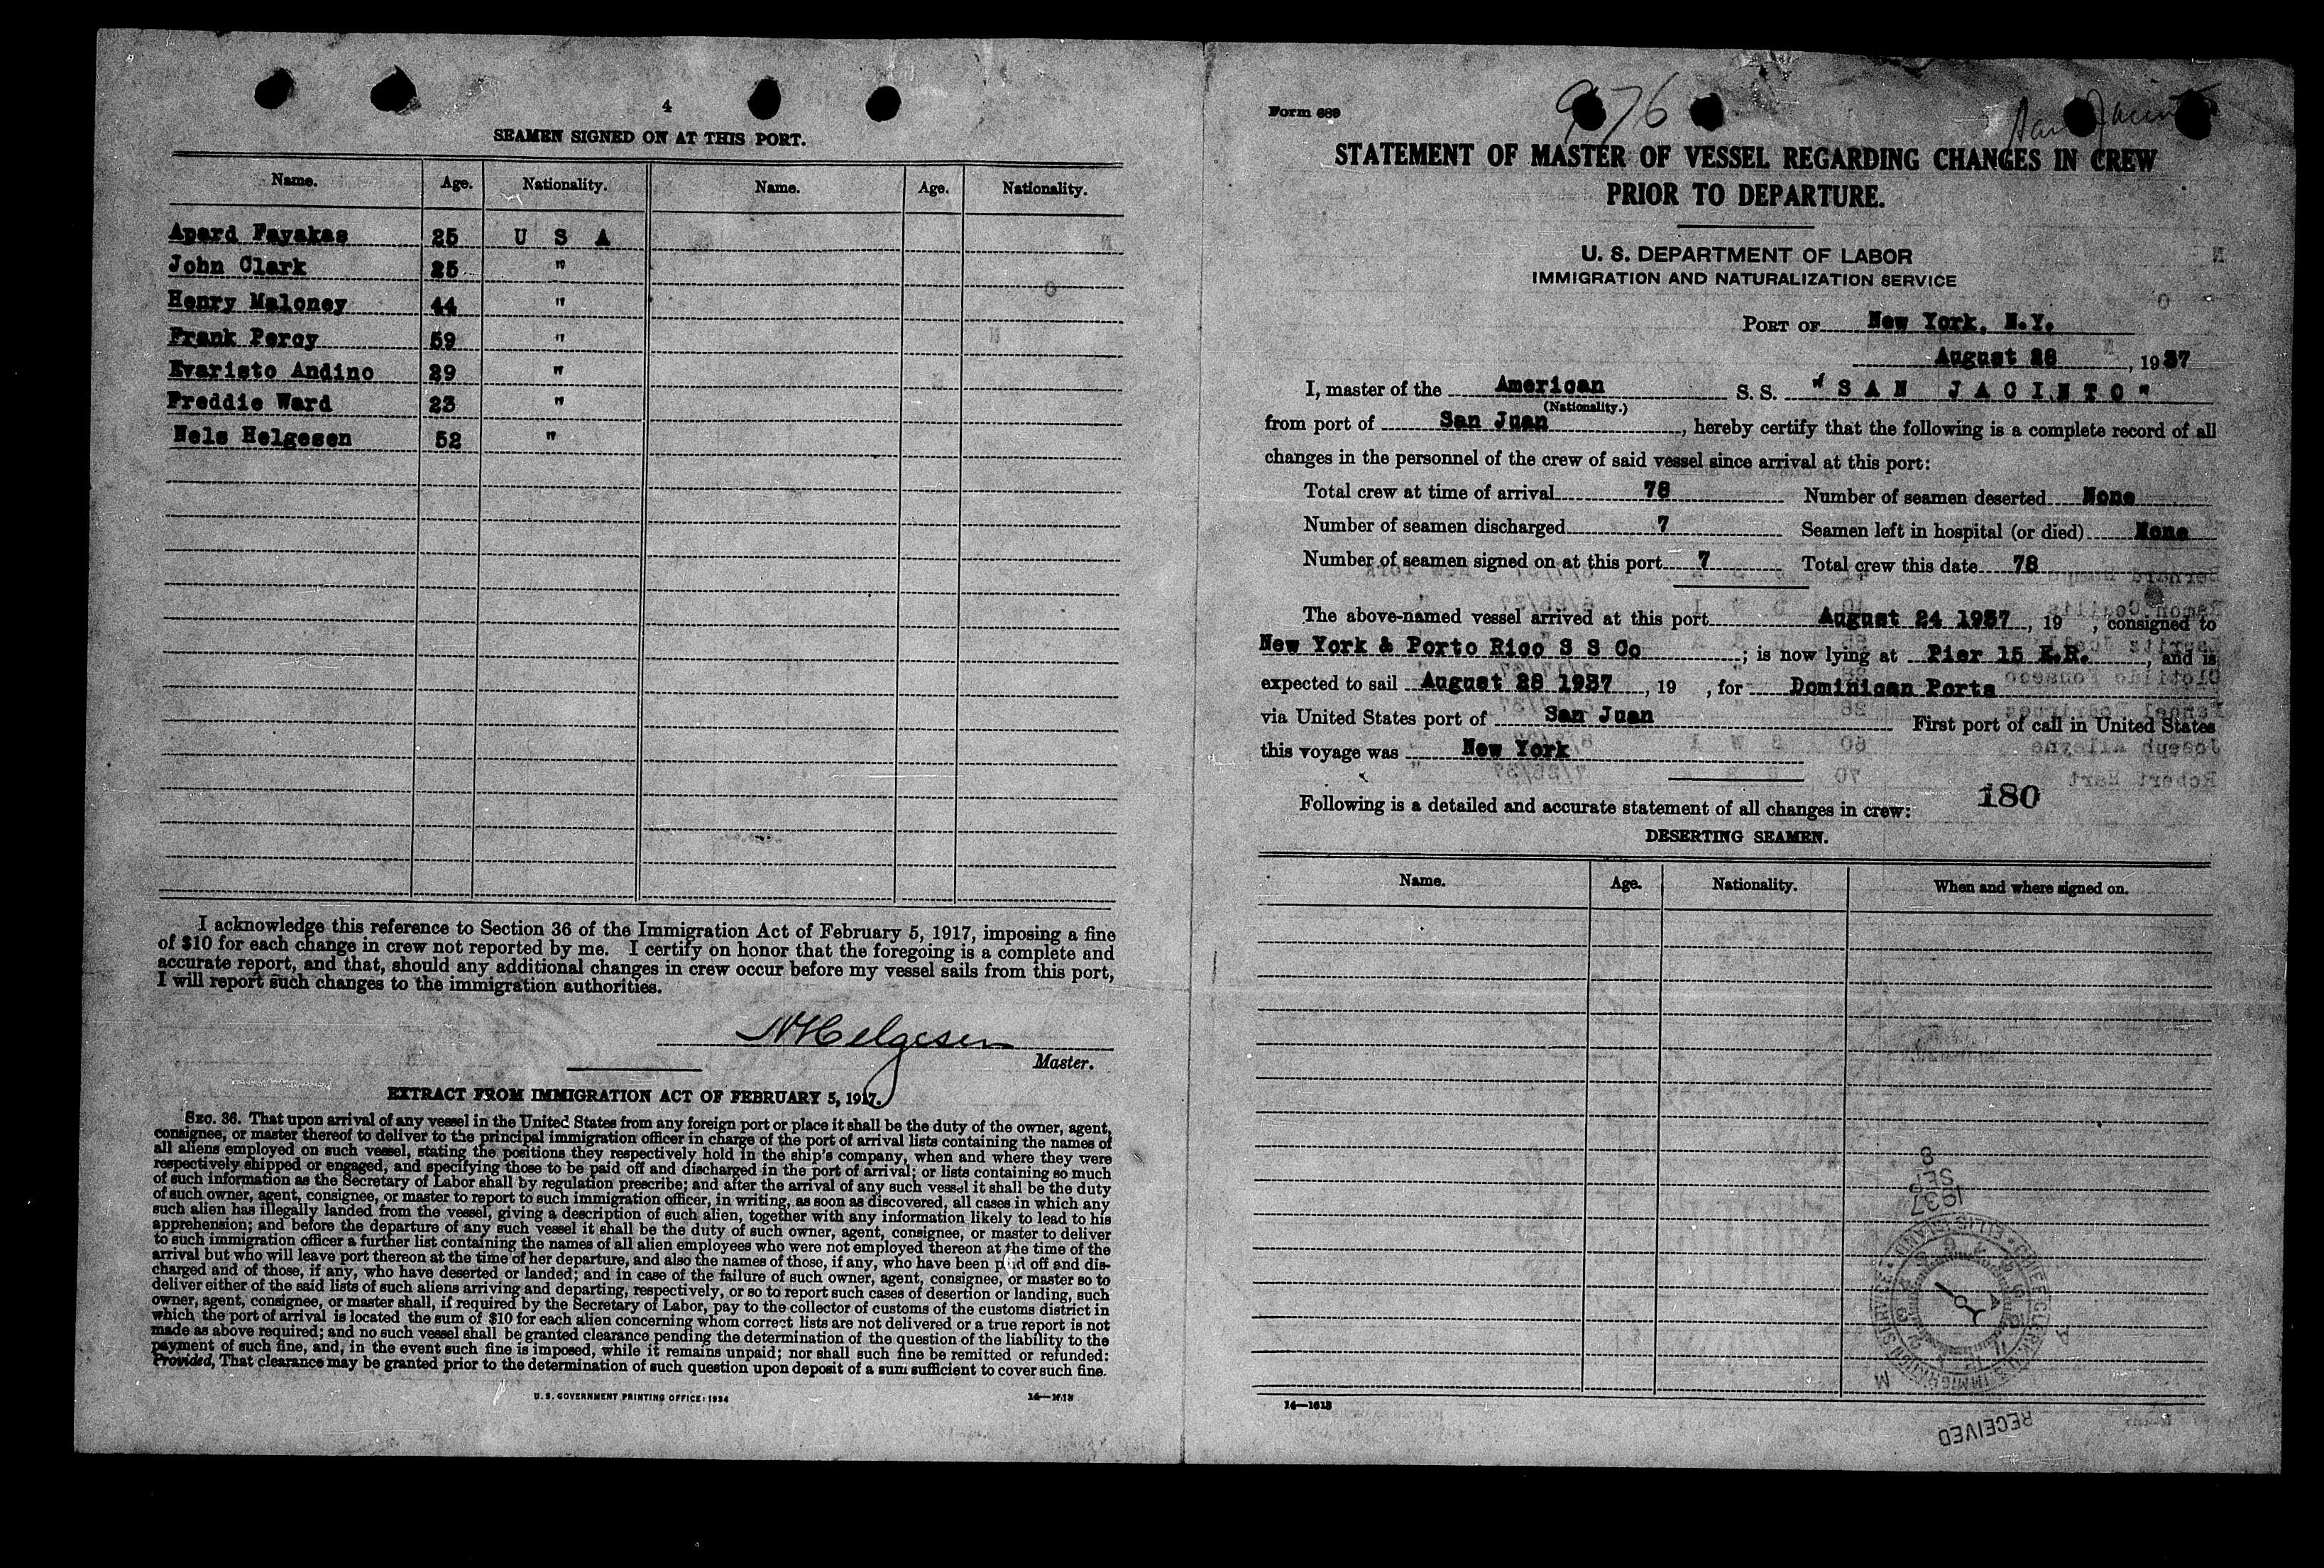 4
SEAMEN SIGNED ON AT THIS PORT.
Name. Age. Nationality. Name. Age. Nationality.
Apard Fayakas 25 U S A
John Clark 25 "
Henry Maloney 44 "
Frank Percy 59 "
Evaristo Andino 29 "
Freddie Ward 23 "
Nels Helgesen 52 "
I acknowledge this reference to Section 36 of the Immigration Act of February 5, 1917, imposing a fine
of $10 for each change in crew not reported by me. I certify on honor that the foregoing is a complete and
accurate report, and that, should any additional changes in crew occur before my vessel sails from this port,
I will report such changes to the immigration authorities.
N Helgesen
Master.
EXTRACT FROM IMMIGRATION ACT OF FEBRUARY 5, 1917.
SEC. 36. That upon arrival of any vessel in the United States from any foreign port or place it shall be the duty of the owner, agent,
consignee, or master thereof to deliver to the principal immigration officer in charge of the port of arrival lists containing the names of
all aliens employed on such vessel, stating the positions they respectively hold in the ship's company, when and where they were
respectively shipped or engaged, and specifying those to be paid off and discharged in the port of arrival; or lists containing so much
of such information as the Secretary of Labor shall by regulation prescribe; and after the arrival of any such vessel it shall be the duty
of such owner, agent, consignee, or master to report to such immigration officer, in writing, as soon as discovered, all cases in which any
such alien has illegally landed from the vessel, giving a description of such alien, together with any information likely to lead to his
apprehension; and before the departure of any such vessel it shall be the duty of such owner, agent, consignee, or master to deliver
to such immigration officer a further list containing the names of all alien employees who were not employed thereon at the time of the
arrival but who will leave port thereon at the time of her departure, and also the names of those, if any, who have been paid off and dis-
charged and of those, if any, who have deserted or landed; and in case of the failure of such owner, agent, consignee, or master so to
deliver either of the said lists of such aliens arriving and departing, respectively, or so to report such cases of desertion or landing, such
owner, agent, consignee, or master shall, if required by the Secretary of Labor, pay to the collector of customs of the customs district in
which the port of arrival is located the sum of $10 for each alien concerning whom correct lists are not delivered or a true report is not
made as above required; and no such vessel shall be granted clearance pending the determination of the question of the liability to the
payment of such fine, and, in the event such fine is imposed, while it remains unpaid; nor shall such fine be remitted or refunded:
Provided, That clearance may be granted prior to the determination of such question upon deposit of a sum sufficient to cover such fine.
U. S. GOVERNMENT PRINTING OFFICE: 1934 14—1613
Form 689
976
San Jacinto
STATEMENT OF MASTER OF VESSEL REGARDING CHANGES IN CREW
PRIOR TO DEPARTURE.
U. S. DEPARTMENT OF LABOR
IMMIGRATION AND NATURALIZATION SERVICE
PORT OF New York, N.Y.
August 28, 1937
I, master of the American S. S. "SAN JACINTO"
(Nationality.)
from port of San Juan, hereby certify that the following is a complete record of all
changes in the personnel of the crew of said vessel since arrival at this port:
Total crew at time of arrival 78 Number of seamen deserted None
Number of seamen discharged 7 Seamen left in hospital (or died) None
Number of seamen signed on at this port 7 Total crew this date 78
The above-named vessel arrived at this port August 24 1937, 19 , consigned to
New York & Porto Rico S S Co ; is now lying at Pier 15 E.R., and is
expected to sail August 28 1937, 19 , for Dominican Ports
via United States port of San Juan First port of call in United States
this voyage was New York
180
Following is a detailed and accurate statement of all changes in crew:
DESERTING SEAMEN.
Name. Age. Nationality. When and where signed on.
8
SEP
1937
CHIEF CLERK U.S. IMMIGRATION SERVICE ELLIS ISLAND
RECEIVED
14—1613